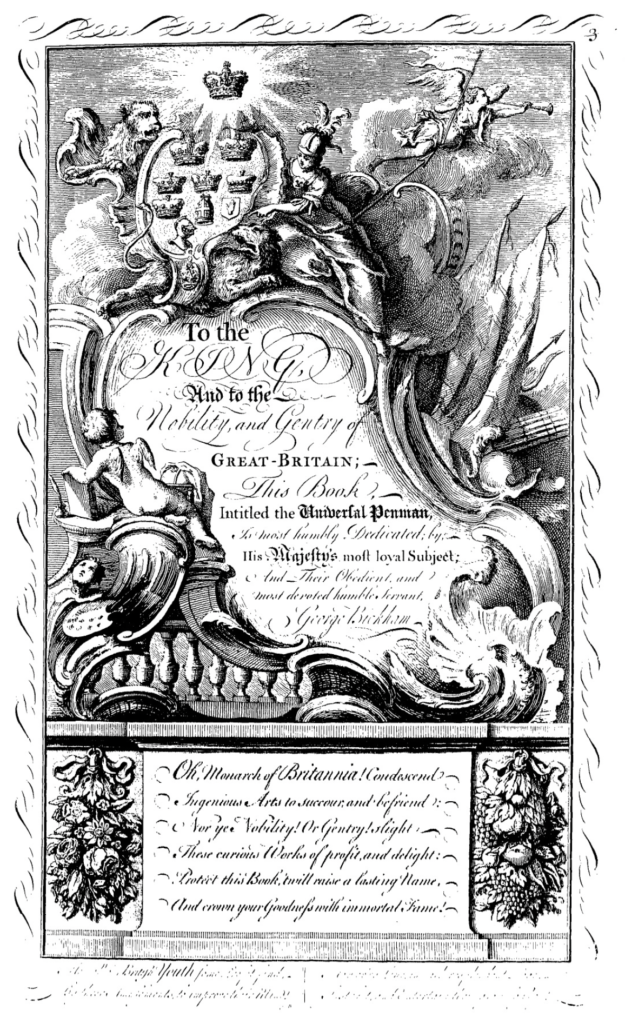 3
To the
KING
And to the
Nobility, and Gentry of
GREAT-BRITAIN;
This Book,
Intitled the Universal Penman,
Is most humbly Dedicated; by,
His Majesty's most loyal Subject;
And Their Obedient, and
most devoted humble Servant,
George Bickham
Oh, Monarch of Britannia! Condescend
Ingenious Arts to succour, and befriend;
Nor ye Nobility! Or Gentry! slight
These curious Works of profit, and delight:
Protect this Book, 'twill raise a lasting Name,
And crown your Goodness with immortal Fame!
British Youth
to improve